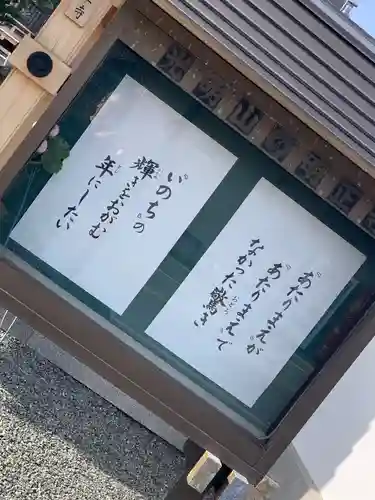 寺
光明山の
あたりまえが
あたりまえで
なかった驚き
いのちの
輝きをおがむ
年にしたい